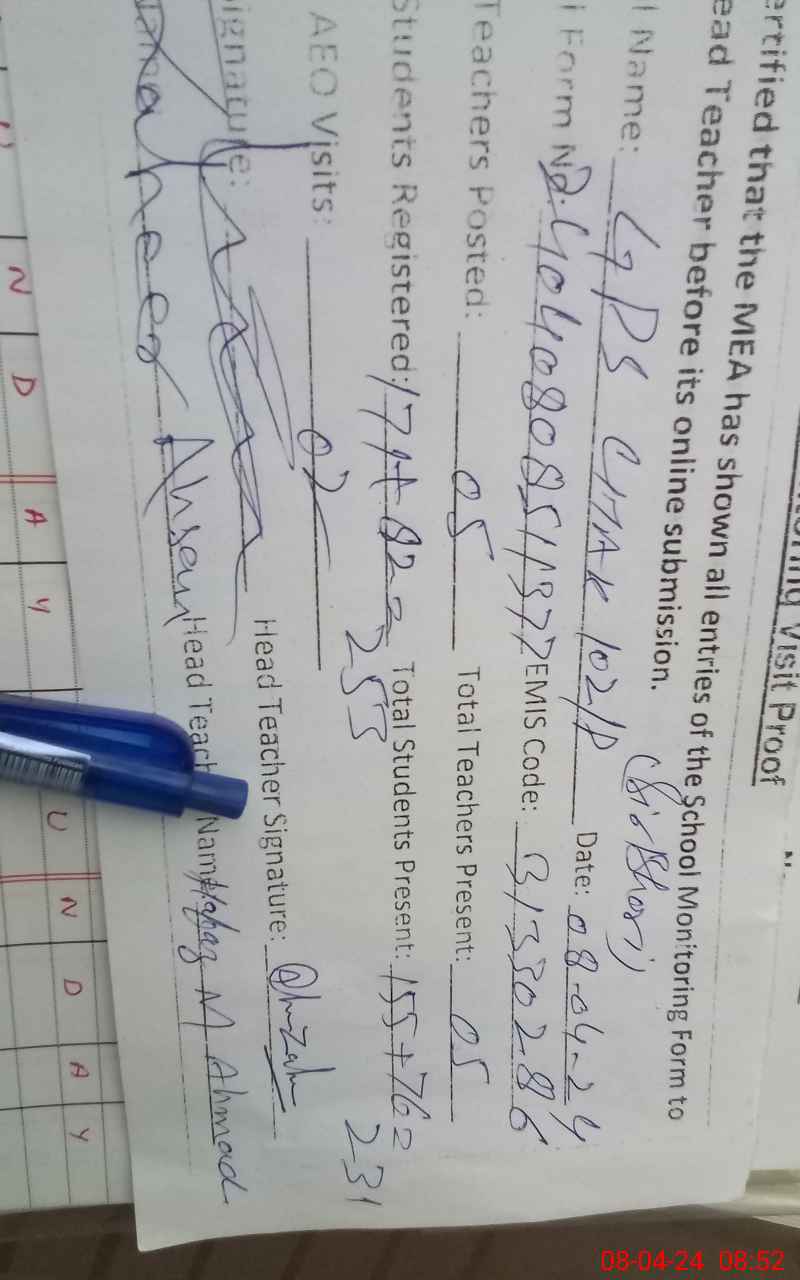 itoring Visit Proof
ertified that the MEA has shown all entries of the School Monitoring Form to
ead Teacher before its online submission.
l Name: GPS CHAK 102/P Date: 08-04-24
i Form No. 24040808511377 EMIS Code: 31330286
Teachers Posted: 05 Total Teachers Present: 05
Students Registered: 171+82= 253 Total Students Present: 155+76= 231
AEO Visits: 02
Signature: Head Teacher Signature:
Ahsan Head Teach Name M Ahmad
N D A Y U N D A Y
08-04-24 08:52